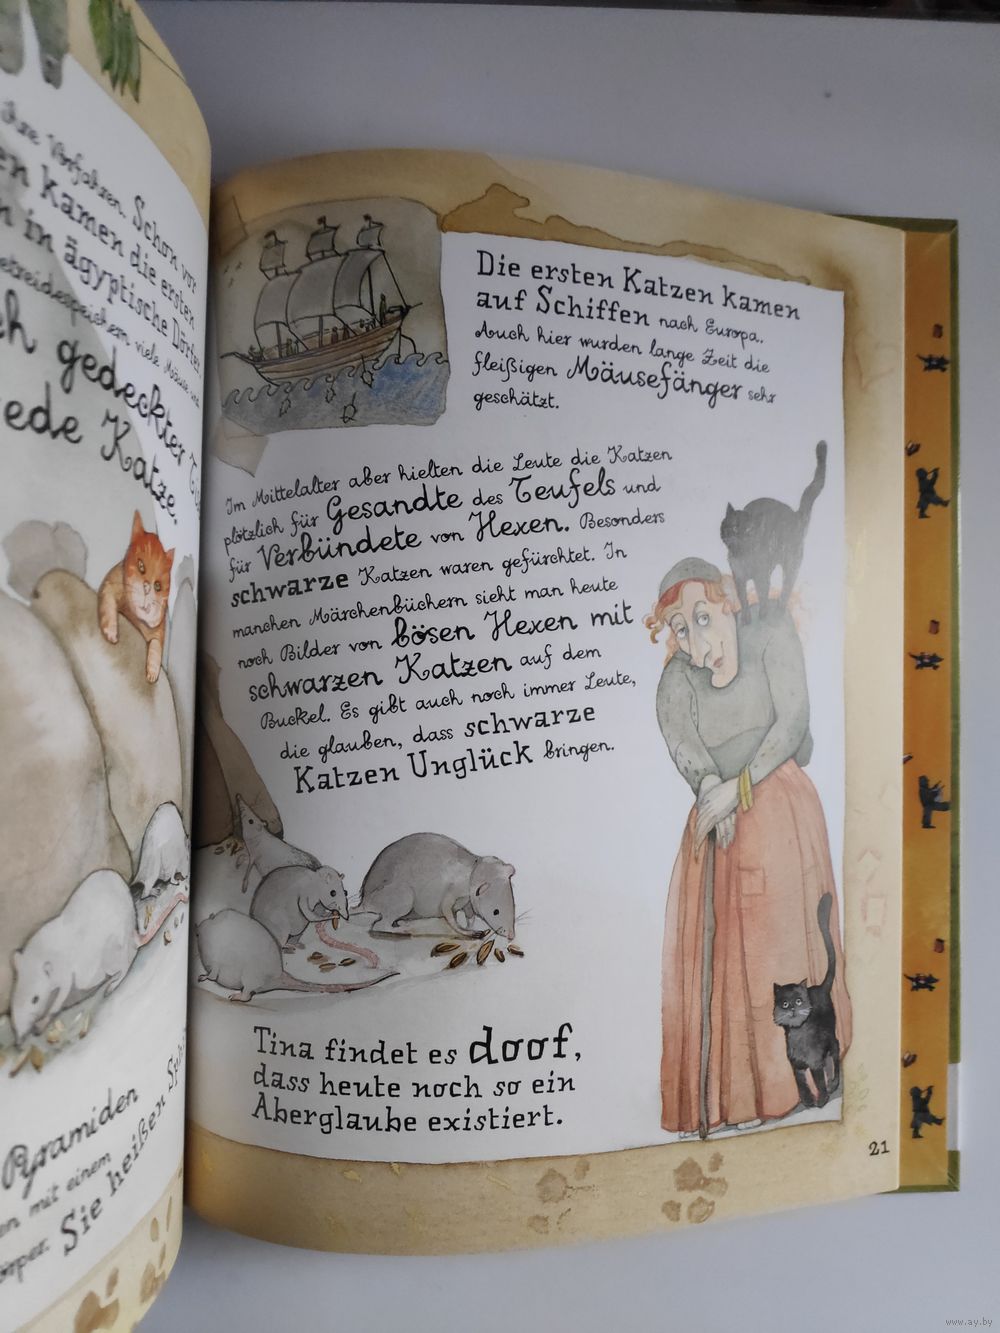 ihre Vorfahren. Schon vor
en kamen die ersten
n in ägyptische Dörfer.
etreidespeichern viele Mäuse und
ch gedeckter
ede Katze.
Pyramiden
en mit einem
örper. Sie heißen
Die ersten Katzen kamen
auf Schiffen nach Europa.
Auch hier wurden lange Zeit die
fleißigen Mäusefänger sehr
geschätzt.
Im Mittelalter aber hielten die Leute die Katzen
plötzlich für Gesandte des Teufels und
für Verbündete von Hexen. Besonders
schwarze Katzen waren gefürchtet. In
manchen Märchenbüchern sieht man heute
noch Bilder von bösen Hexen mit
schwarzen Katzen auf dem
Buckel. Es gibt auch noch immer Leute,
die glauben, dass schwarze
Katzen Unglück bringen.
Tina findet es doof,
dass heute noch so ein
Aberglaube existiert.
21
www.ay.by